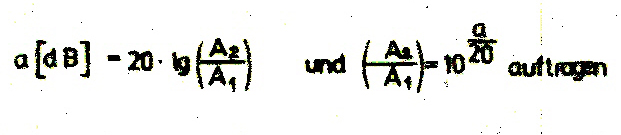 a [dB] = 20 · lg (A₂/A₁) und (A₂/A₁) = 10^(a/20) auftragen